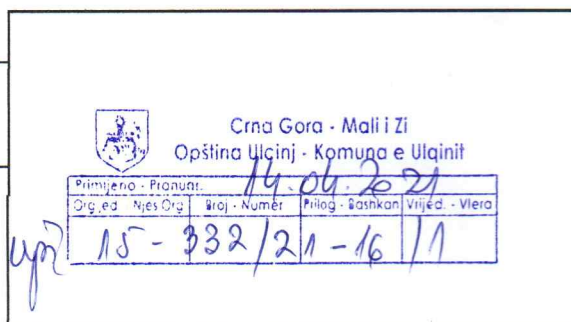 Crna Gora - Mali i Zi
Opština Ulcinj - Komuna e Ulqinit
Primljeno - Pranuar. 14.04.2021
Org.jed Njes.Org Broj - Numër Prilog - Bashkan Vrijed. - Vlera
15 - 332/21-16/1